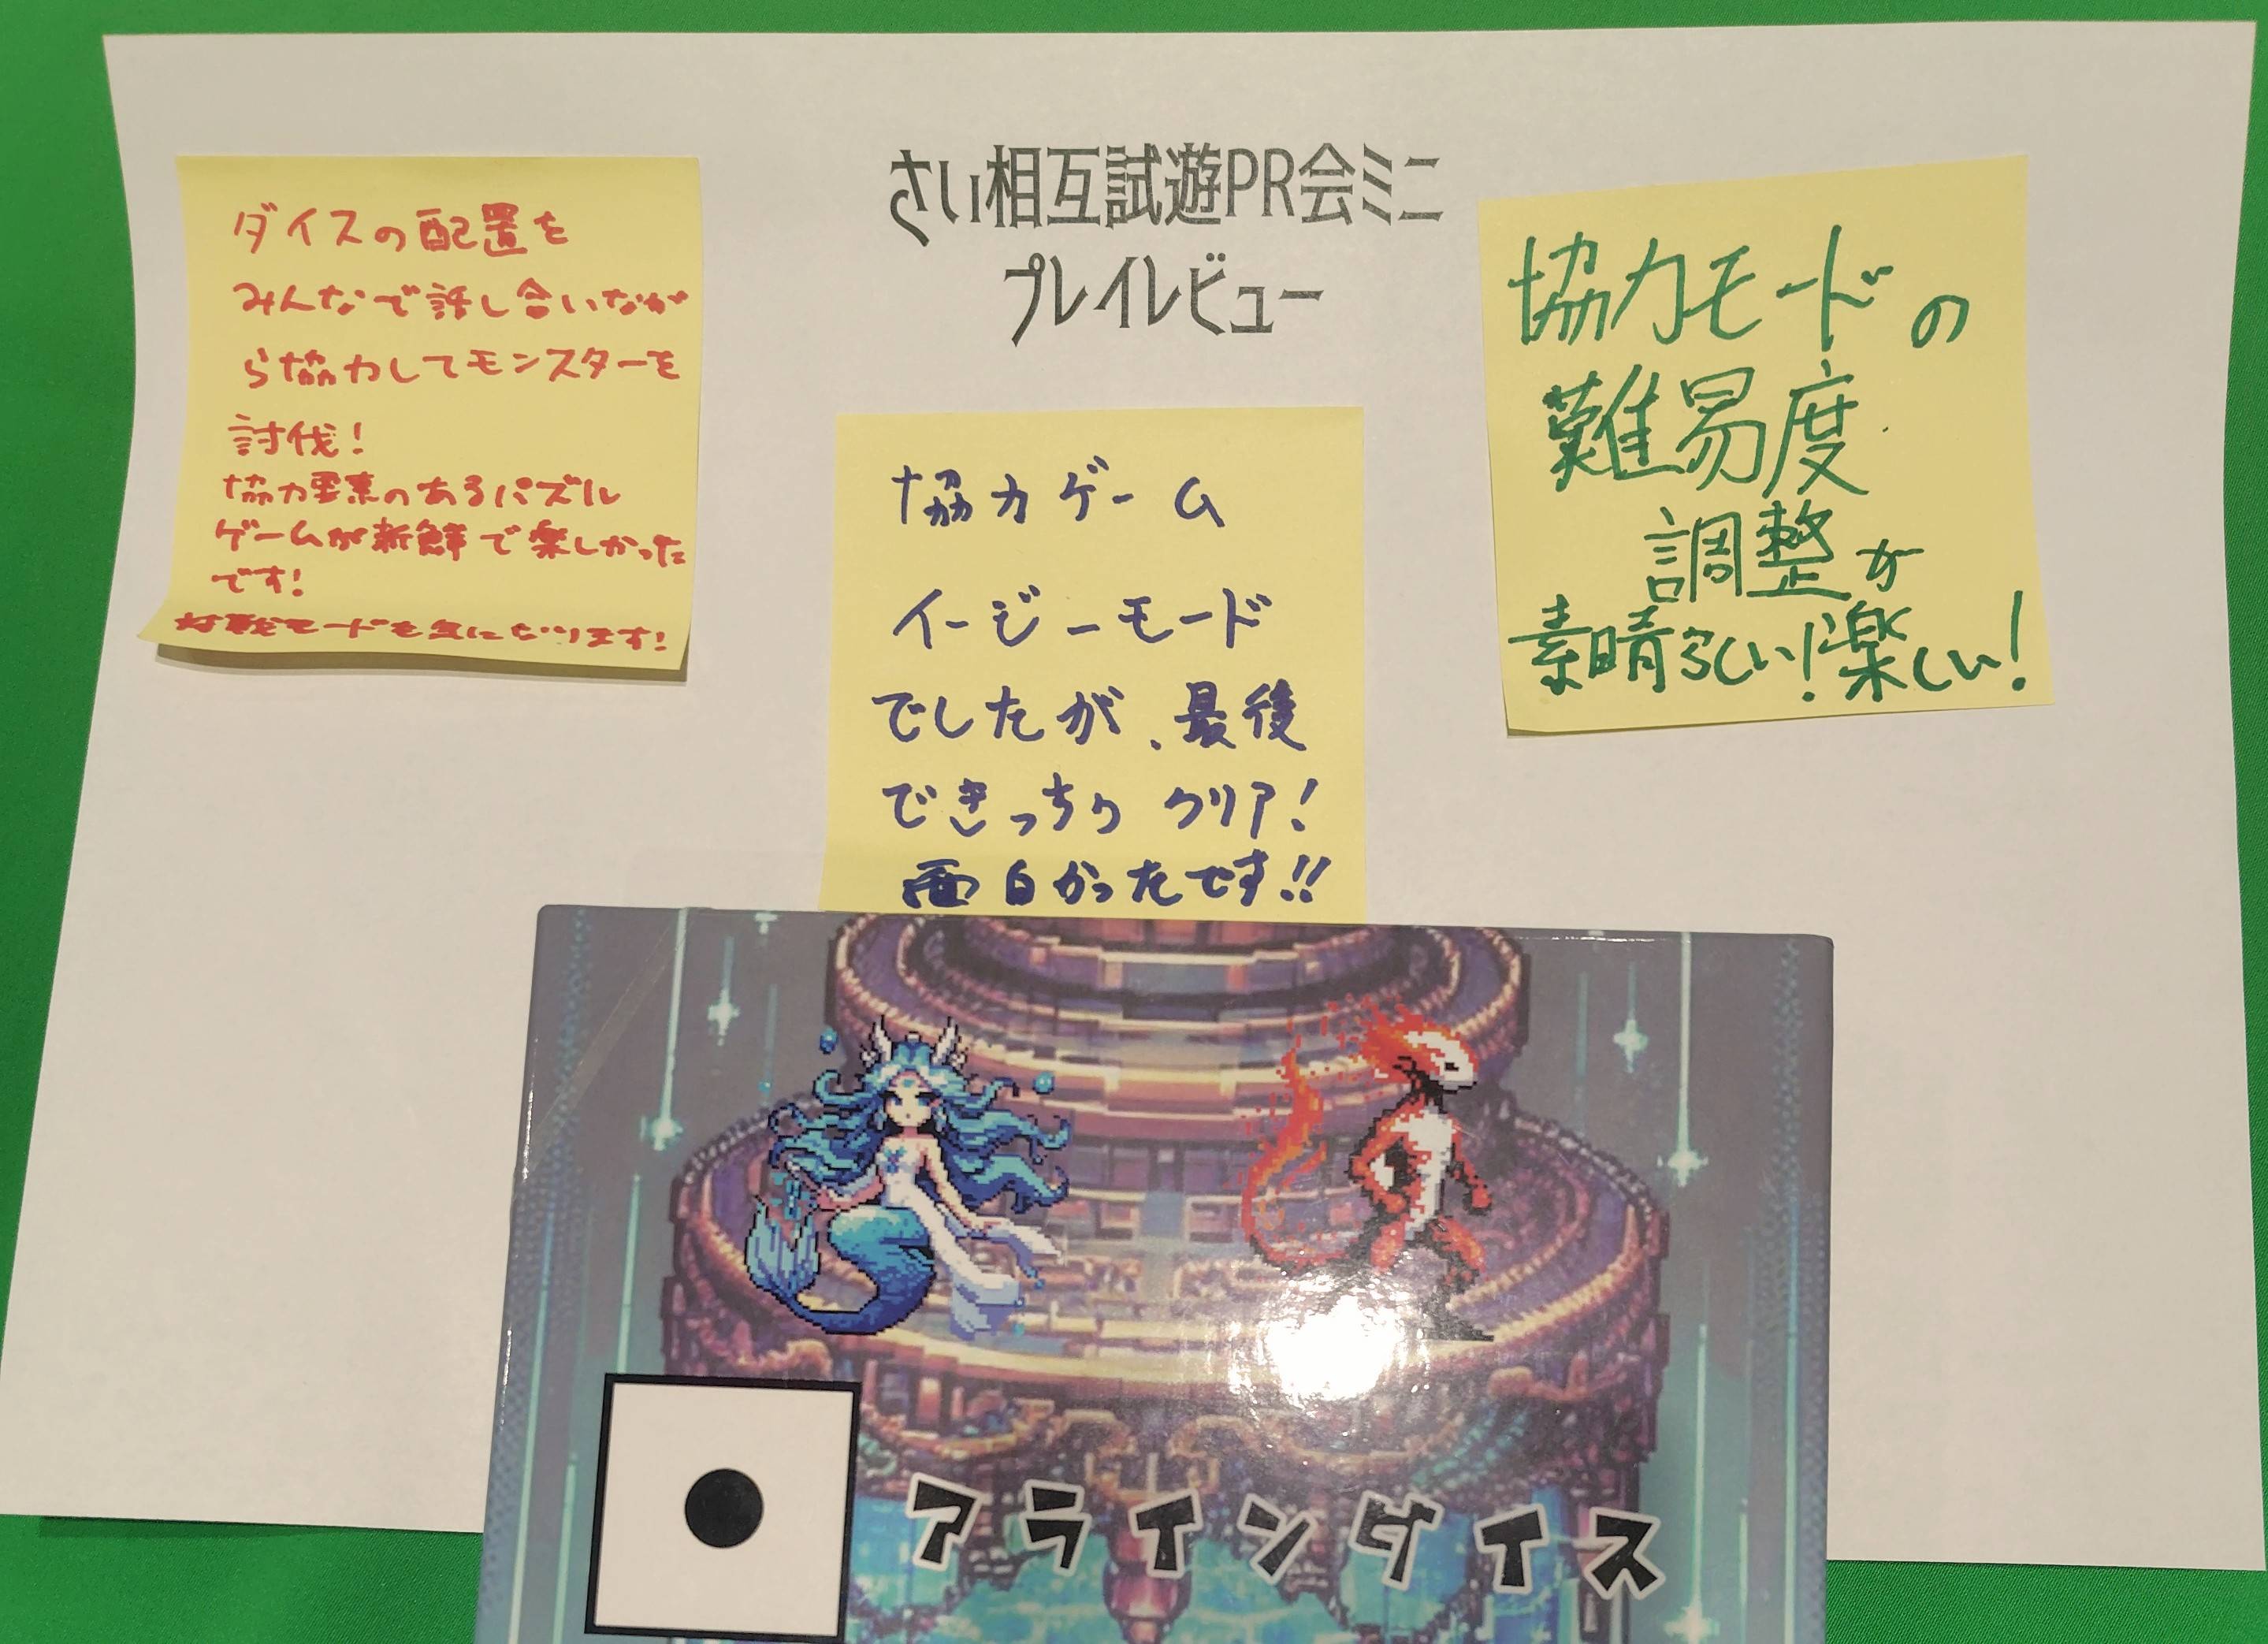 さい相互試遊PR会ミニ
プレイレビュー
ダイスの配置を
みんなで話し合いなが
ら協力してモンスターを
討伐！
協力要素のあるパズル
ゲームが新鮮で楽しかった
です！
対戦モードも気になります！
協力ゲーム
イージーモード
でしたが、最後
できっちり クリア！
面白かったです!!
協力モードの
難易度
調整が
素晴らしい！楽しい！
アラインダイス